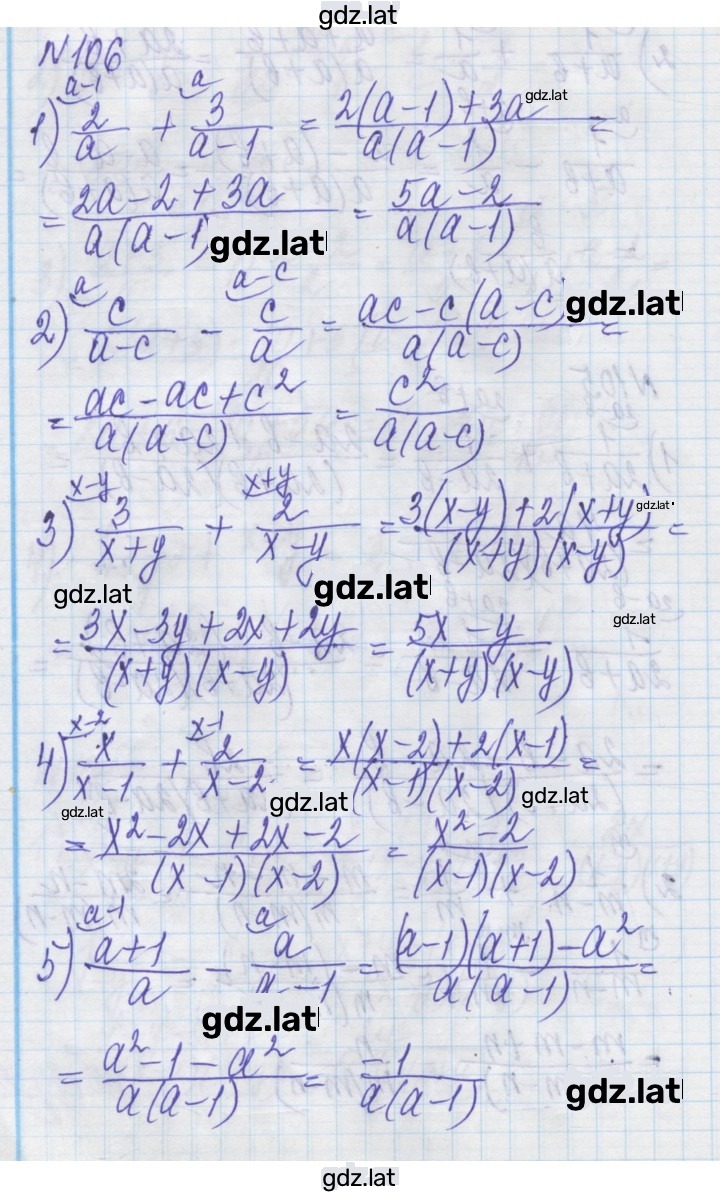 gdz.lat
N106
a-1 a
1) 2/a + 3/(a-1) = (2(a-1)+3a)/(a(a-1)) = gdz.lat
= (2a-2+3a)/(a(a-1) = (5a-2)/(a(a-1)) gdz.lat
a a-c
2) c/(a-c) - c/a = (ac-c(a-c))/(a(a-c)) = gdz.lat
= (ac-ac+c²)/(a(a-c)) = c²/(a(a-c))
x-y x+y
3) 3/(x+y) + 2/(x-y) = (3(x-y)+2(x+y))/((x+y)(x-y)) = gdz.lat
gdz.lat gdz.lat
= (3x-3y+2x+2y)/((x+y)(x-y)) = (5x-y)/((x+y)(x-y)) gdz.lat
x-2 x-1
4) x/(x-1) + 2/(x-2) = (x(x-2)+2(x-1))/((x-1)(x-2)) =
gdz.lat gdz.lat gdz.lat
= (x²-2x+2x-2)/((x-1)(x-2)) = (x²-2)/((x-1)(x-2))
a-1 a
5) (a+1)/a - a/(a-1) = ((a-1)(a+1)-a²)/(a(a-1)) =
gdz.lat
= (a²-1-a²)/(a(a-1)) = -1/(a(a-1)) gdz.lat
gdz.lat